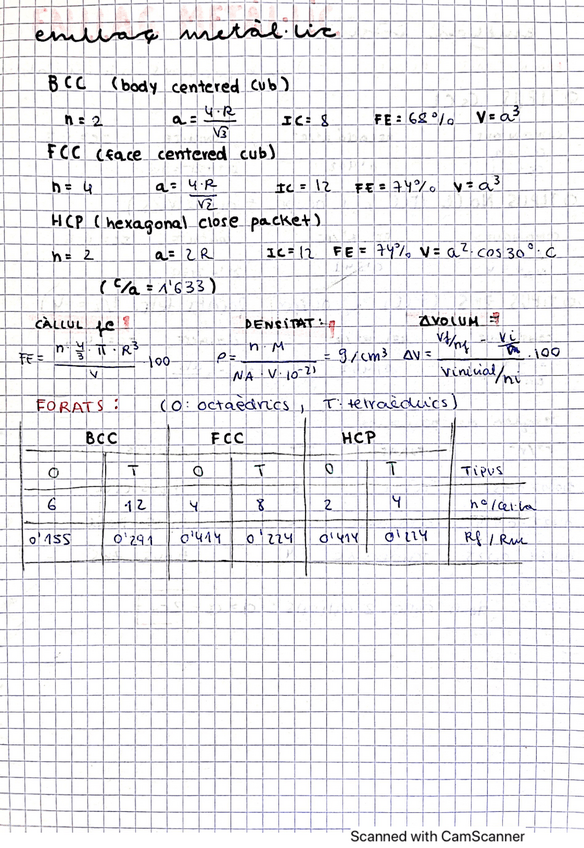 enllaç metàl·lic
BCC (body centered cub)
n = 2 a = 4·R/√3 IC = 8 FE = 68% V = a³
FCC (face centered cub)
n = 4 a = 4·R/√2 IC = 12 FE = 74% V = a³
HCP (hexagonal close packet)
n = 2 a = 2R IC = 12 FE = 74% V = a²·cos30°·c
(c/a = 1'633)
CÀLCUL fe: DENSITAT: ΔVOLUM:
FE = n·4/3·π·R³ / V ·100 ρ = n·M / NA·V·10⁻²¹ = g/cm³ ΔV = Vf/nf - Vi/ni / Vinicial/ni ·100
FORATS: (O: octaèdrics, T: tetraèdrics)
BCC FCC HCP
O T O T O T Tipus
6 12 4 8 2 4 nº/cel·la
0'155 0'291 0'414 0'224 0'414 0'224 Rf/Rm
Scanned with CamScanner